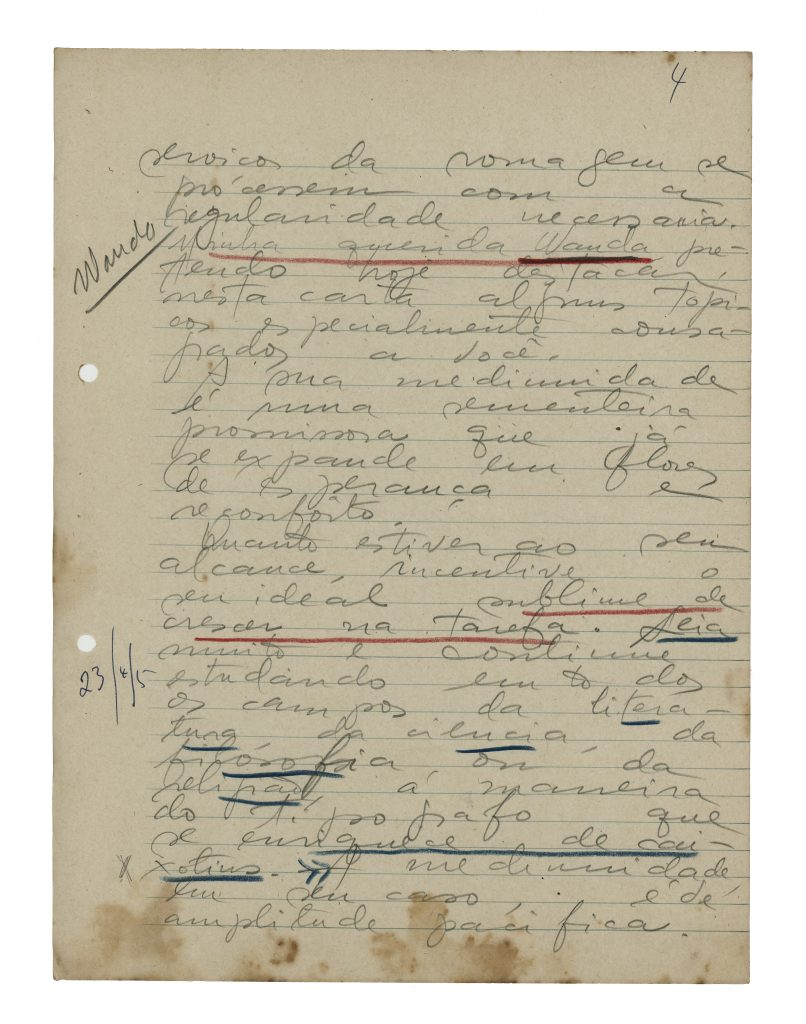 4
serviços da romagem se
processem com a
regularidade necessaria.
Wanda
Minha querida Wanda pre-
tendo hoje destacar,
nesta carta alguns topi-
cos especialmente consa-
grados a você.
A sua mediunidade
é uma sementeira
promissora que já
se expande em flores
de esperança e
reconfôrto.
Quanto estiver ao seu
alcance, incentive o
seu ideal sublime de
crescer na tarefa. Leia
muito e continue
23/4/5
estudando em todos
os campos da litera-
tura, da ciencia, da
filosofia ou da
religião, á maneira
do tipografo que
se enriquece de cai-
X xotins. A mediunidade
em seu caso, é de
amplitude pacifica.